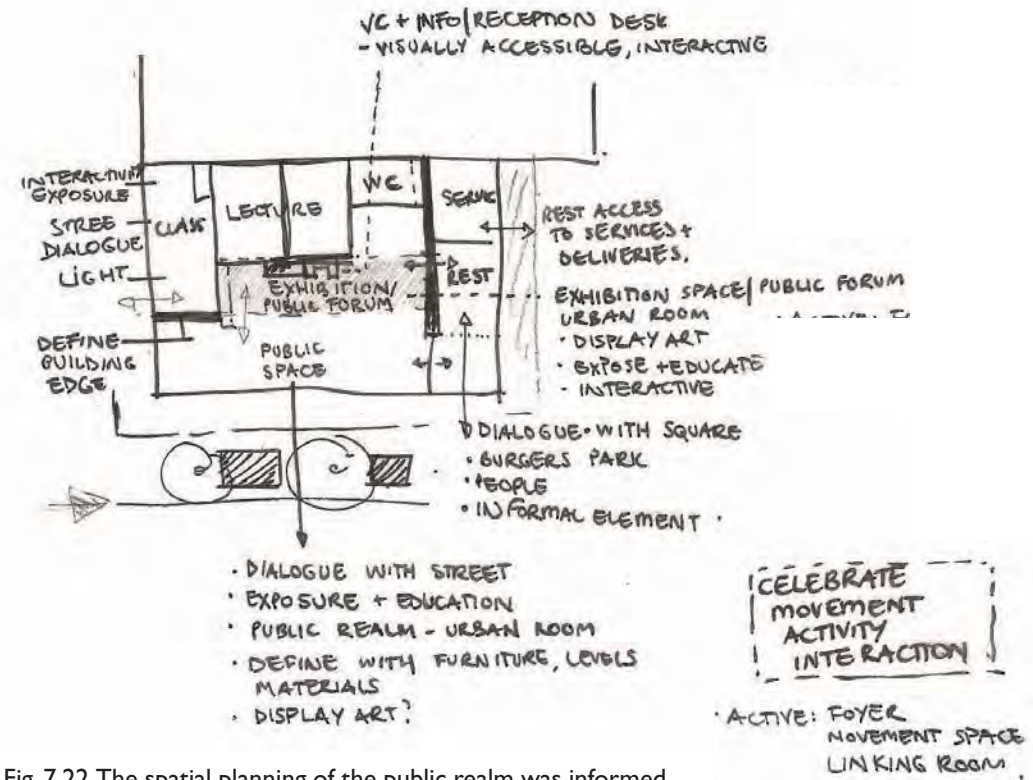 VC + INFO/RECEPTION DESK
- VISUALLY ACCESSIBLE, INTERACTIVE
INTERACTIVE
EXPOSURE
STREE
DIALOGUE
LIGHT
DEFINE
BUILDING
EDGE
CLASS
LECTURE
WC
SERVIC
REST
EXHIBITION/
PUBLIC FORUM
PUBLIC
SPACE
REST ACCESS
TO SERVICES +
DELIVERIES.
EXHIBITION SPACE/PUBLIC FORUM
URBAN ROOM
· DISPLAY ART
· EXPOSE + EDUCATE
- INTERACTIVE
DIALOGUE WITH SQUARE
· BURGERS PARK
· PEOPLE
· INFORMAL ELEMENT
· DIALOGUE WITH STREET
· EXPOSURE + EDUCATION
· PUBLIC REALM - URBAN ROOM
· DEFINE WITH FURNITURE, LEVELS
MATERIALS
· DISPLAY ART?
CELEBRATE
MOVEMENT
ACTIVITY
INTERACTION
· ACTIVE: FOYER
MOVEMENT SPACE
LINKING ROOM
Fig. 7.22 The spatial planning of the public realm was informed